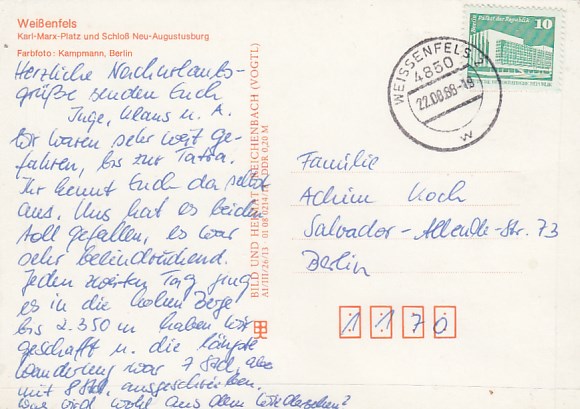 Weißenfels
Karl-Marx-Platz und Schloß Neu-Augustusburg
Farbfoto: Kampmann, Berlin
Herzliche Nachurlaubs-
grüße senden Euch
Inge, Klaus u. A.
Wir waren sehr weit ge-
fahren, bis zur Tatra.
Ihr kennt Euch da selbst
aus. Uns hat es beiden
toll gefallen, es war
sehr beeindruckend.
Jeden zweiten Tag ging
es in die hohen Berge
bis 2.350 m haben wir
geschafft u. die längste
Wanderung war 7 Std, aber
mit 8 Std. ausgeschrieben.
Was wird wohl aus dem Wiedersehen?
BILD UND HEIMAT REICHENBACH (VOGTL)
A1/III/26/13 01 08 0214/ DDR 0,20 M
Berlin Palast der Republik
10
WEISSENFELS 2
4850
22.08.88-18
w
Familie
Achim Koch
Salvador-Allende-Str. 73
Berlin
1170